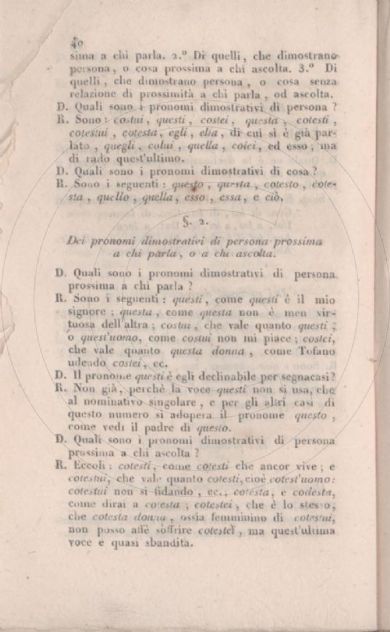 40
sima a chi parla. 2.° Di quelli, che dimostrano
persona, o cosa prossima a chi ascolta. 3.° Di
quelli, che dimostrano persona, o cosa senza
relazione di prossimità a chi parla, od ascolta.
D. Quali sono i pronomi dimostrativi di persona?
R. Sono: costui, questi, costei, questa, cotesti,
cotestui, cotesta, egli, ella, di cui si è già par-
lato, quegli, colui, quella, colei, ed esso; ma
di rado quest'ultimo.
D. Quali sono i pronomi dimostrativi di cosa?
R. Sono i seguenti: questo, questa, cotesto, cote-
sta, quello, quella, esso, essa, e ciò.
§. 2.
Dei pronomi dimostrativi di persona prossima
a chi parla, o a chi ascolta.
D. Quali sono i pronomi dimostrativi di persona
prossima a chi parla?
R. Sono i seguenti: questi, come questi è il mio
signore; questa, come questa non è men vir-
tuosa dell'altra; costui, che vale quanto questi,
o quest'uomo, come costui non mi piace; costei,
che vale quanto questa donna, come Tofano
udendo costei, ec.
D. Il pronome questi è egli declinabile per segnacasi?
R. Non già, perchè la voce questi non si usa, che
al nominativo singolare, e per gli altri casi di
questo numero si adopera il pronome questo,
come vedi il padre di questo.
D. Quali sono i pronomi dimostrativi di persona
prossima a chi ascolta?
R. Eccoli: cotesti, come cotesti che ancor vive; e
cotestui, che vale quanto cotesti, cioè cotest'uomo:
cotestui non si fidando, ec., cotesta, e codesta,
come dirai a cotesta; cotestei, che è lo stesso,
che cotesta donna, ossia femminino di cotestui,
non posso affè soffrire cotestei, ma quest'ultima
voce e quasi sbandita.